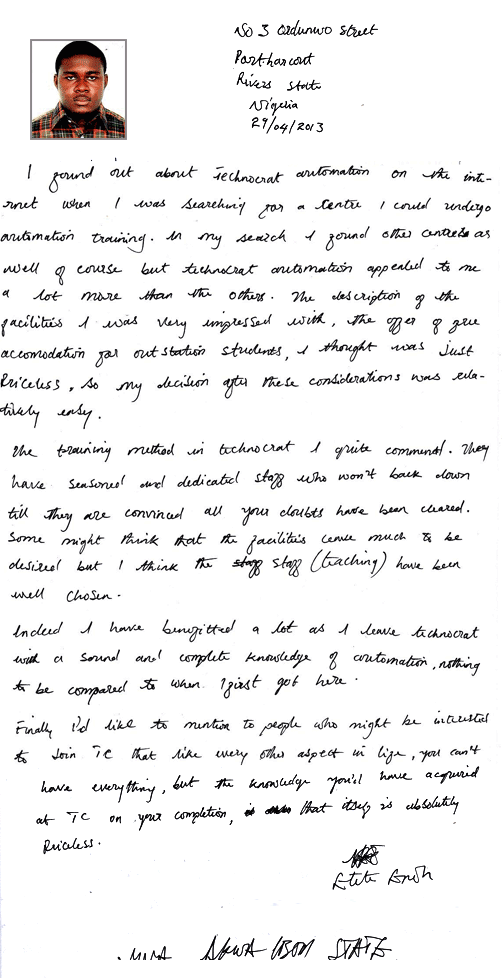 No 3 Ordunwo Street
Portharcourt
Rivers State
Nigeria
29/04/2013
I found out about Technocrat automation on the inte-
rnet when I was searching for a centre I could undergo
automation training. In my search I found other centres as
well of course but technocrat automation appealed to me
a lot more than the others. The description of the
facilities I was very impressed with, the offer of free
accomodation for outstation students, I thought was just
Priceless, so my decision after these considerations was rela-
tively easy.
The training method in technocrat I quite commend. They
have seasoned and dedicated staff who won't back down
till they are convinced all your doubts have been cleared.
Some might think that the facilities leave much to be
desired but I think the staff (teaching) have been
well chosen.
Indeed I have benefitted a lot as I leave technocrat
with a sound and complete knowledge of automation, nothing
to be compared to when I first got here.
Finally I'd like to mention to people who might be interested
to Join TC that like every other aspect in life, you can't
have everything, but the knowledge you'd have acquired
at TC on your completion, that itself is absolutely
Priceless.
AKWA IBOM STATE